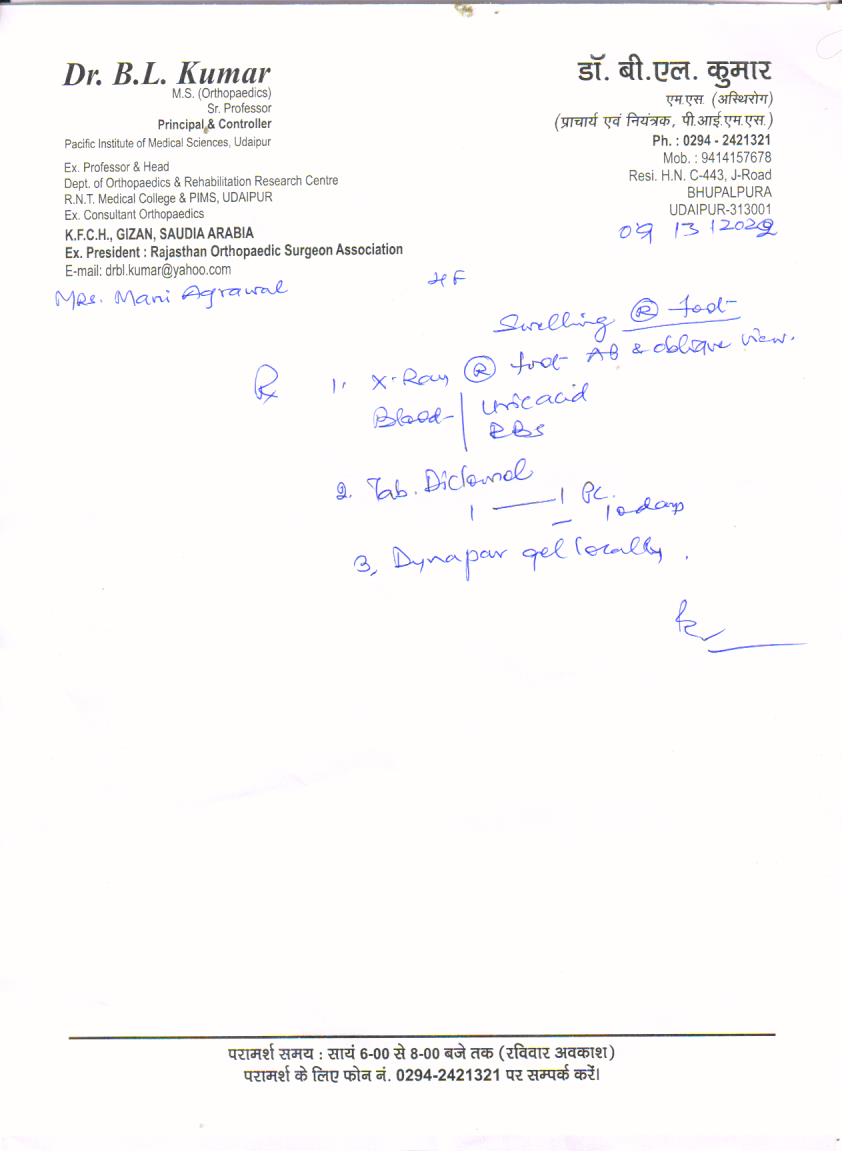 Dr. B.L. Kumar
M.S. (Orthopaedics)
Sr. Professor
Principal & Controller
Pacific Institute of Medical Sciences, Udaipur
Ex. Professor & Head
Dept. of Orthopaedics & Rehabilitation Research Centre
R.N.T. Medical College & PIMS, UDAIPUR
Ex. Consultant Orthopaedics
K.F.C.H., GIZAN, SAUDIA ARABIA
Ex. President : Rajasthan Orthopaedic Surgeon Association
E-mail: drbl.kumar@yahoo.com
डॉ. बी.एल. कुमार
एम.एस. (अस्थिरोग)
(प्राचार्य एवं नियंत्रक, पी.आई.एम.एस.)
Ph. : 0294 - 2421321
Mob. : 9414157678
Resi. H.N. C-443, J-Road
BHUPALPURA
UDAIPUR-313001
Mrs. Mani Agrawal
Swelling Ⓡ foot
Rx 1. X-Ray Ⓡ foot & oblique view.
Blood- Uric acid
RBS
2. Tab.
1 — 1 PC.
10 days
3. Dynapar gel locally.
परामर्श समय : सायं 6-00 से 8-00 बजे तक (रविवार अवकाश)
परामर्श के लिए फोन नं. 0294-2421321 पर सम्पर्क करें।